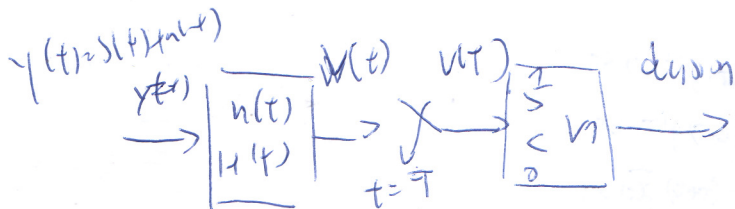 y(t)=s(t)+n(t)
y(t)
h(t)
H(f)
V(t)
t=T
V(T)
1
>
<
0
decision